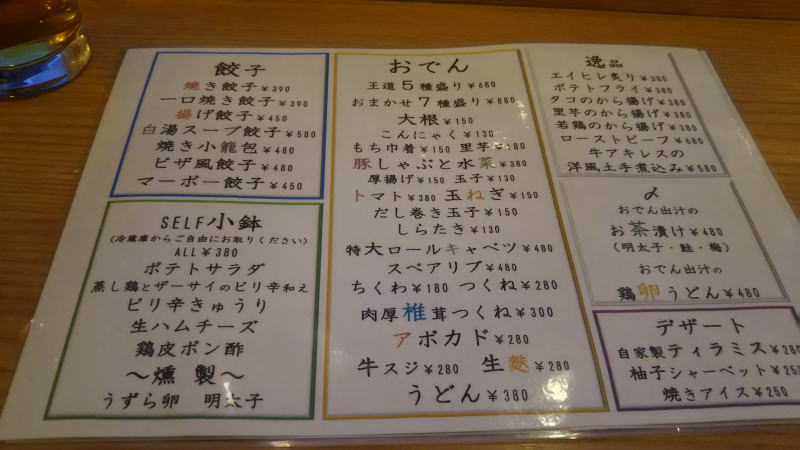 餃子
焼き餃子¥390
一口焼き餃子¥390
揚げ餃子¥450
白湯スープ餃子¥580
焼き小籠包¥480
ピザ風餃子¥480
マーボー餃子¥450
SELF小鉢
(冷蔵庫からご自由にお取りください)
ALL¥380
ポテトサラダ
蒸し鶏とザーサイのピリ辛和え
ピリ辛きゅうり
生ハムチーズ
鶏皮ポン酢
〜燻製〜
うずら卵 明太子
おでん
王道5種盛り¥680
おまかせ7種盛り¥880
大根¥150
こんにゃく¥130
もち巾着¥150 里芋¥180
豚しゃぶと水菜¥380
厚揚げ¥150 玉子¥130
トマト¥380 玉ねぎ¥150
だし巻き玉子¥150
しらたき¥130
特大ロールキャベツ¥480
スペアリブ¥480
ちくわ¥180 つくね¥280
肉厚椎茸つくね¥300
アボカド¥280
牛スジ¥280 生麩¥280
うどん¥380
逸品
エイヒレ炙り¥380
ポテトフライ¥380
タコのから揚げ¥380
里芋のから揚げ¥380
若鶏のから揚げ¥380
ローストビーフ¥680
牛アキレスの
洋風土手煮込み¥580
〆
おでん出汁の
お茶漬け¥480
(明太子・鮭・梅)
おでん出汁の
鶏卵うどん¥480
デザート
自家製ティラミス¥280
柚子シャーベット¥250
焼きアイス¥250